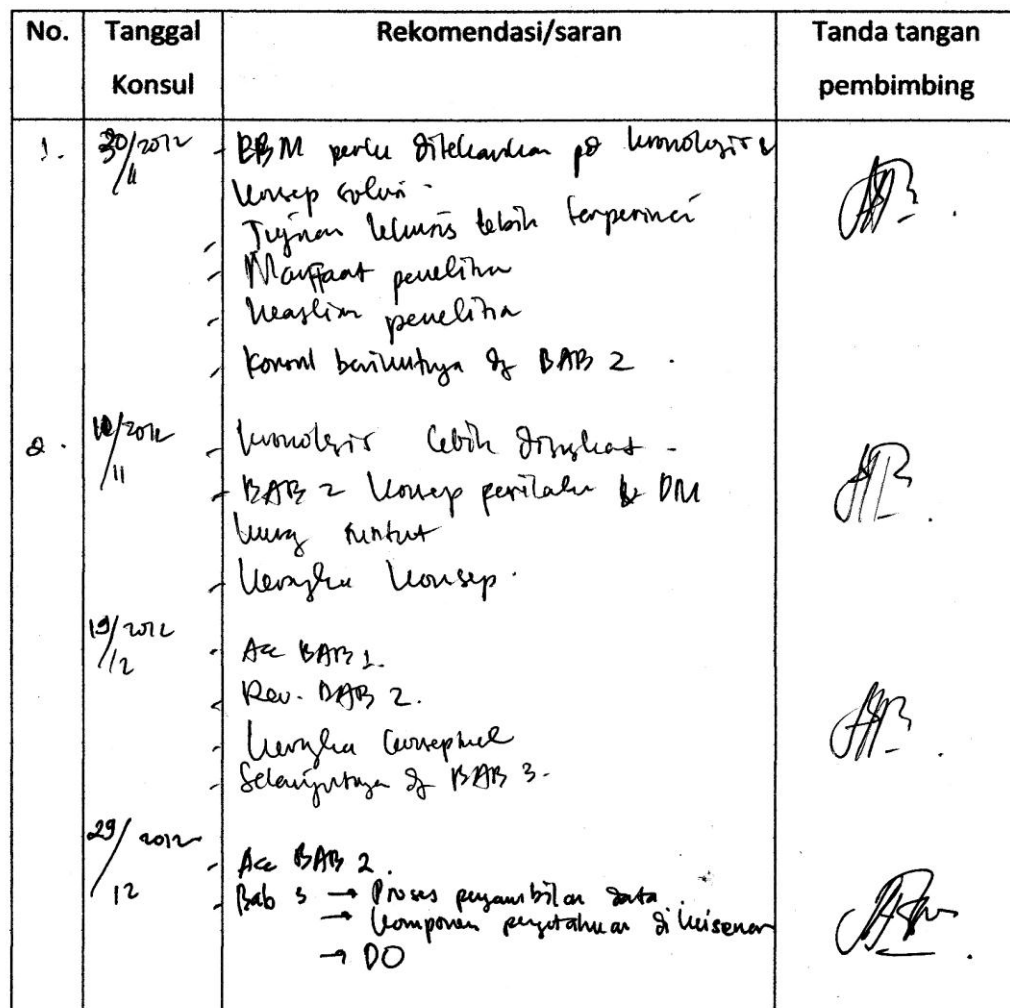 No. Tanggal Konsul Rekomendasi/saran Tanda tangan pembimbing
1. 30/11 2012 - BBM perlu ditekankan pd kronologis &
konsep solusi -
- Tujuan khusus lebih terperinci
- Manfaat penelitian
- Keaslian penelitian
- Konsul berikutnya dg BAB 2 .
2. /11 2012 - kronologis lebih disingkat -
- BAB 2 konsep perilaku & DM
kurang runtut
- Kerangka konsep .
19/12 2012 - Acc BAB 1.
- Rev. BAB 2.
- Kerangka konseptual
- Selanjutnya dg BAB 3.
29/12 2012 - Acc BAB 2.
- Bab 3 → Proses pengambilan data
→ Komponen pengetahuan di kuisener
→ DO